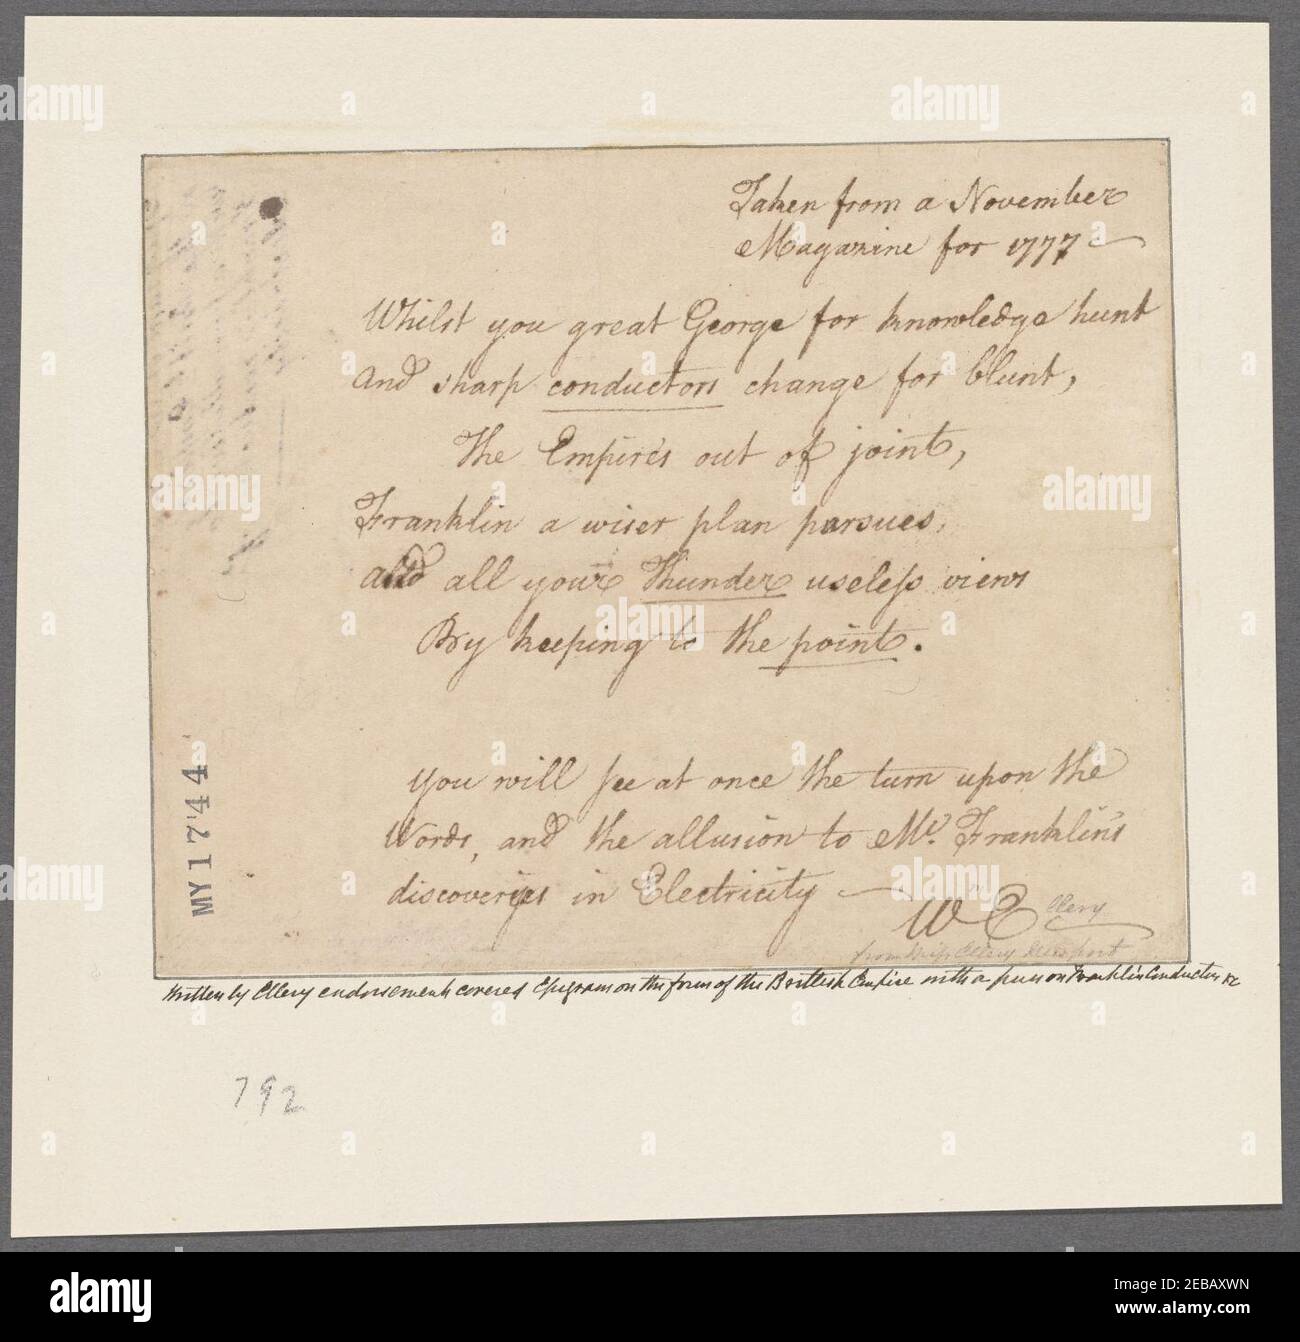 Taken from a November
Magazine for 1777
Whilst you great George for knowledge hunt
And sharp conductors change for blunt,
The Empire's out of joint,
Franklin a wiser plan pursues,
And all your Thunder useless views
By keeping to the point.
You will see at once the turn upon the
Words, and the allusion to Mr. Franklin's
discoveries in Electricity
Wm Ellery
from Miss Ellery Newport
Written by Ellery endorsements covered Epigram on the form of the British Empire with a pun on Franklin Conductors &c
MY 1744
792
alamy
alamy
Image ID: 2EBAXWN
www.alamy.com